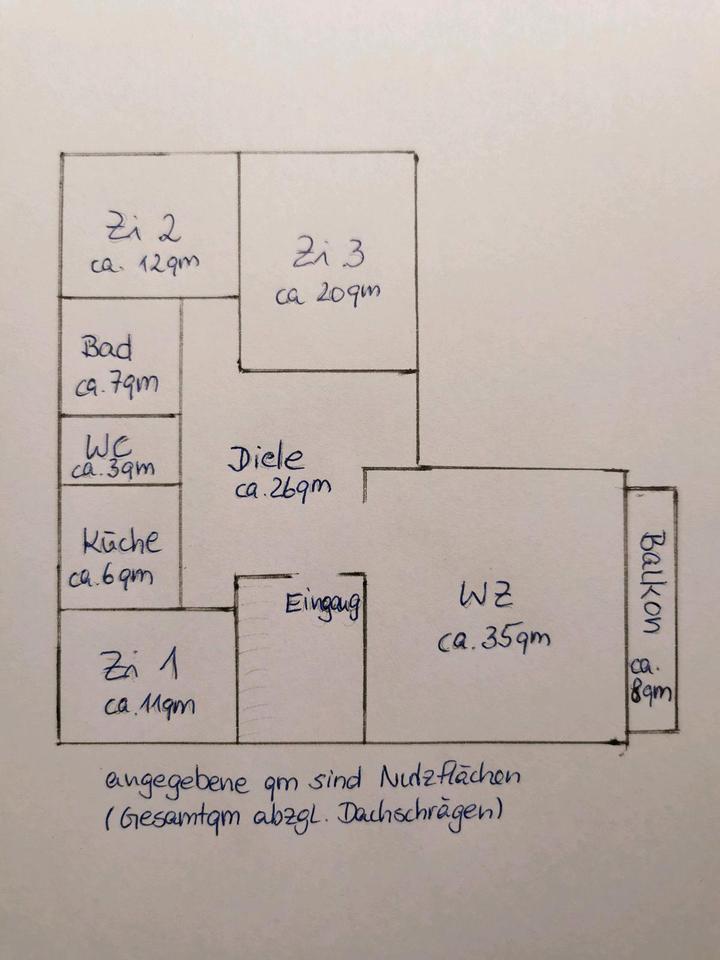 Zi 2
ca. 12qm
Zi 3
ca 20qm
Bad
ca. 7qm
WC
ca. 3qm
Diele
ca. 26qm
Küche
ca. 6qm
Eingang
WZ
ca. 35qm
Balkon
ca.
8qm
Zi 1
ca. 11qm
angegebene qm sind Nutzflächen
(Gesamtqm abzgl. Dachschrägen)